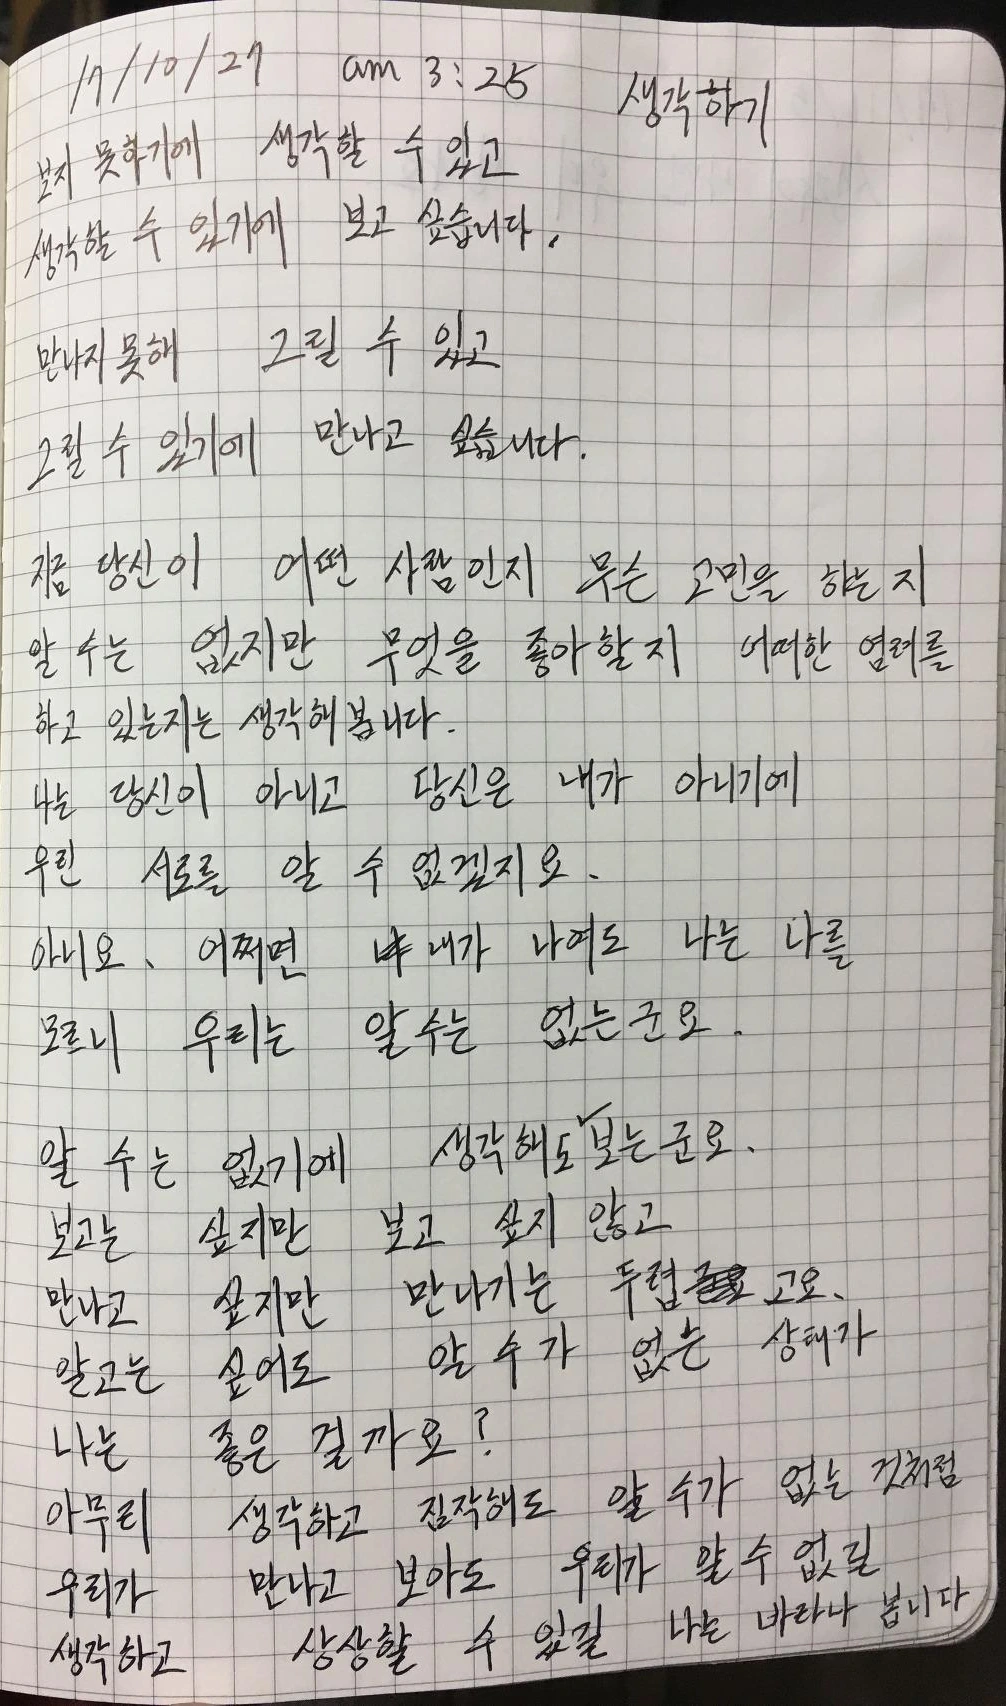 17/10/27 am 3:25 생각하기
보지 못하기에 생각할 수 있고
생각할 수 있기에 보고 싶습니다.
만나지 못해 그릴 수 있고
그릴 수 있기에 만나고 싶습니다.
지금 당신이 어떤 사람인지 무슨 고민을 하는지
알 수는 없지만 무엇을 좋아할지 어떠한 염려를
하고 있는지는 생각해 봅니다.
나는 당신이 아니고 당신은 내가 아니기에
우린 서로를 알 수 없겠지요.
아니요. 어쩌면 내가 나여도 나는 나를
모르니 우리는 알 수는 없는군요.
알 수는 없기에 생각해도 보는군요.
보고는 싶지만 보고 싶지 않고
만나고 싶지만 만나기는 두렵고요.
알고는 싶어도 알 수가 없는 상태가
나는 좋은 걸까요?
아무리 생각하고 짐작해도 알 수가 없는 것처럼
우리가 만나고 보아도 우리가 알 수 없길
생각하고 상상할 수 있길 나는 바라나 봅니다